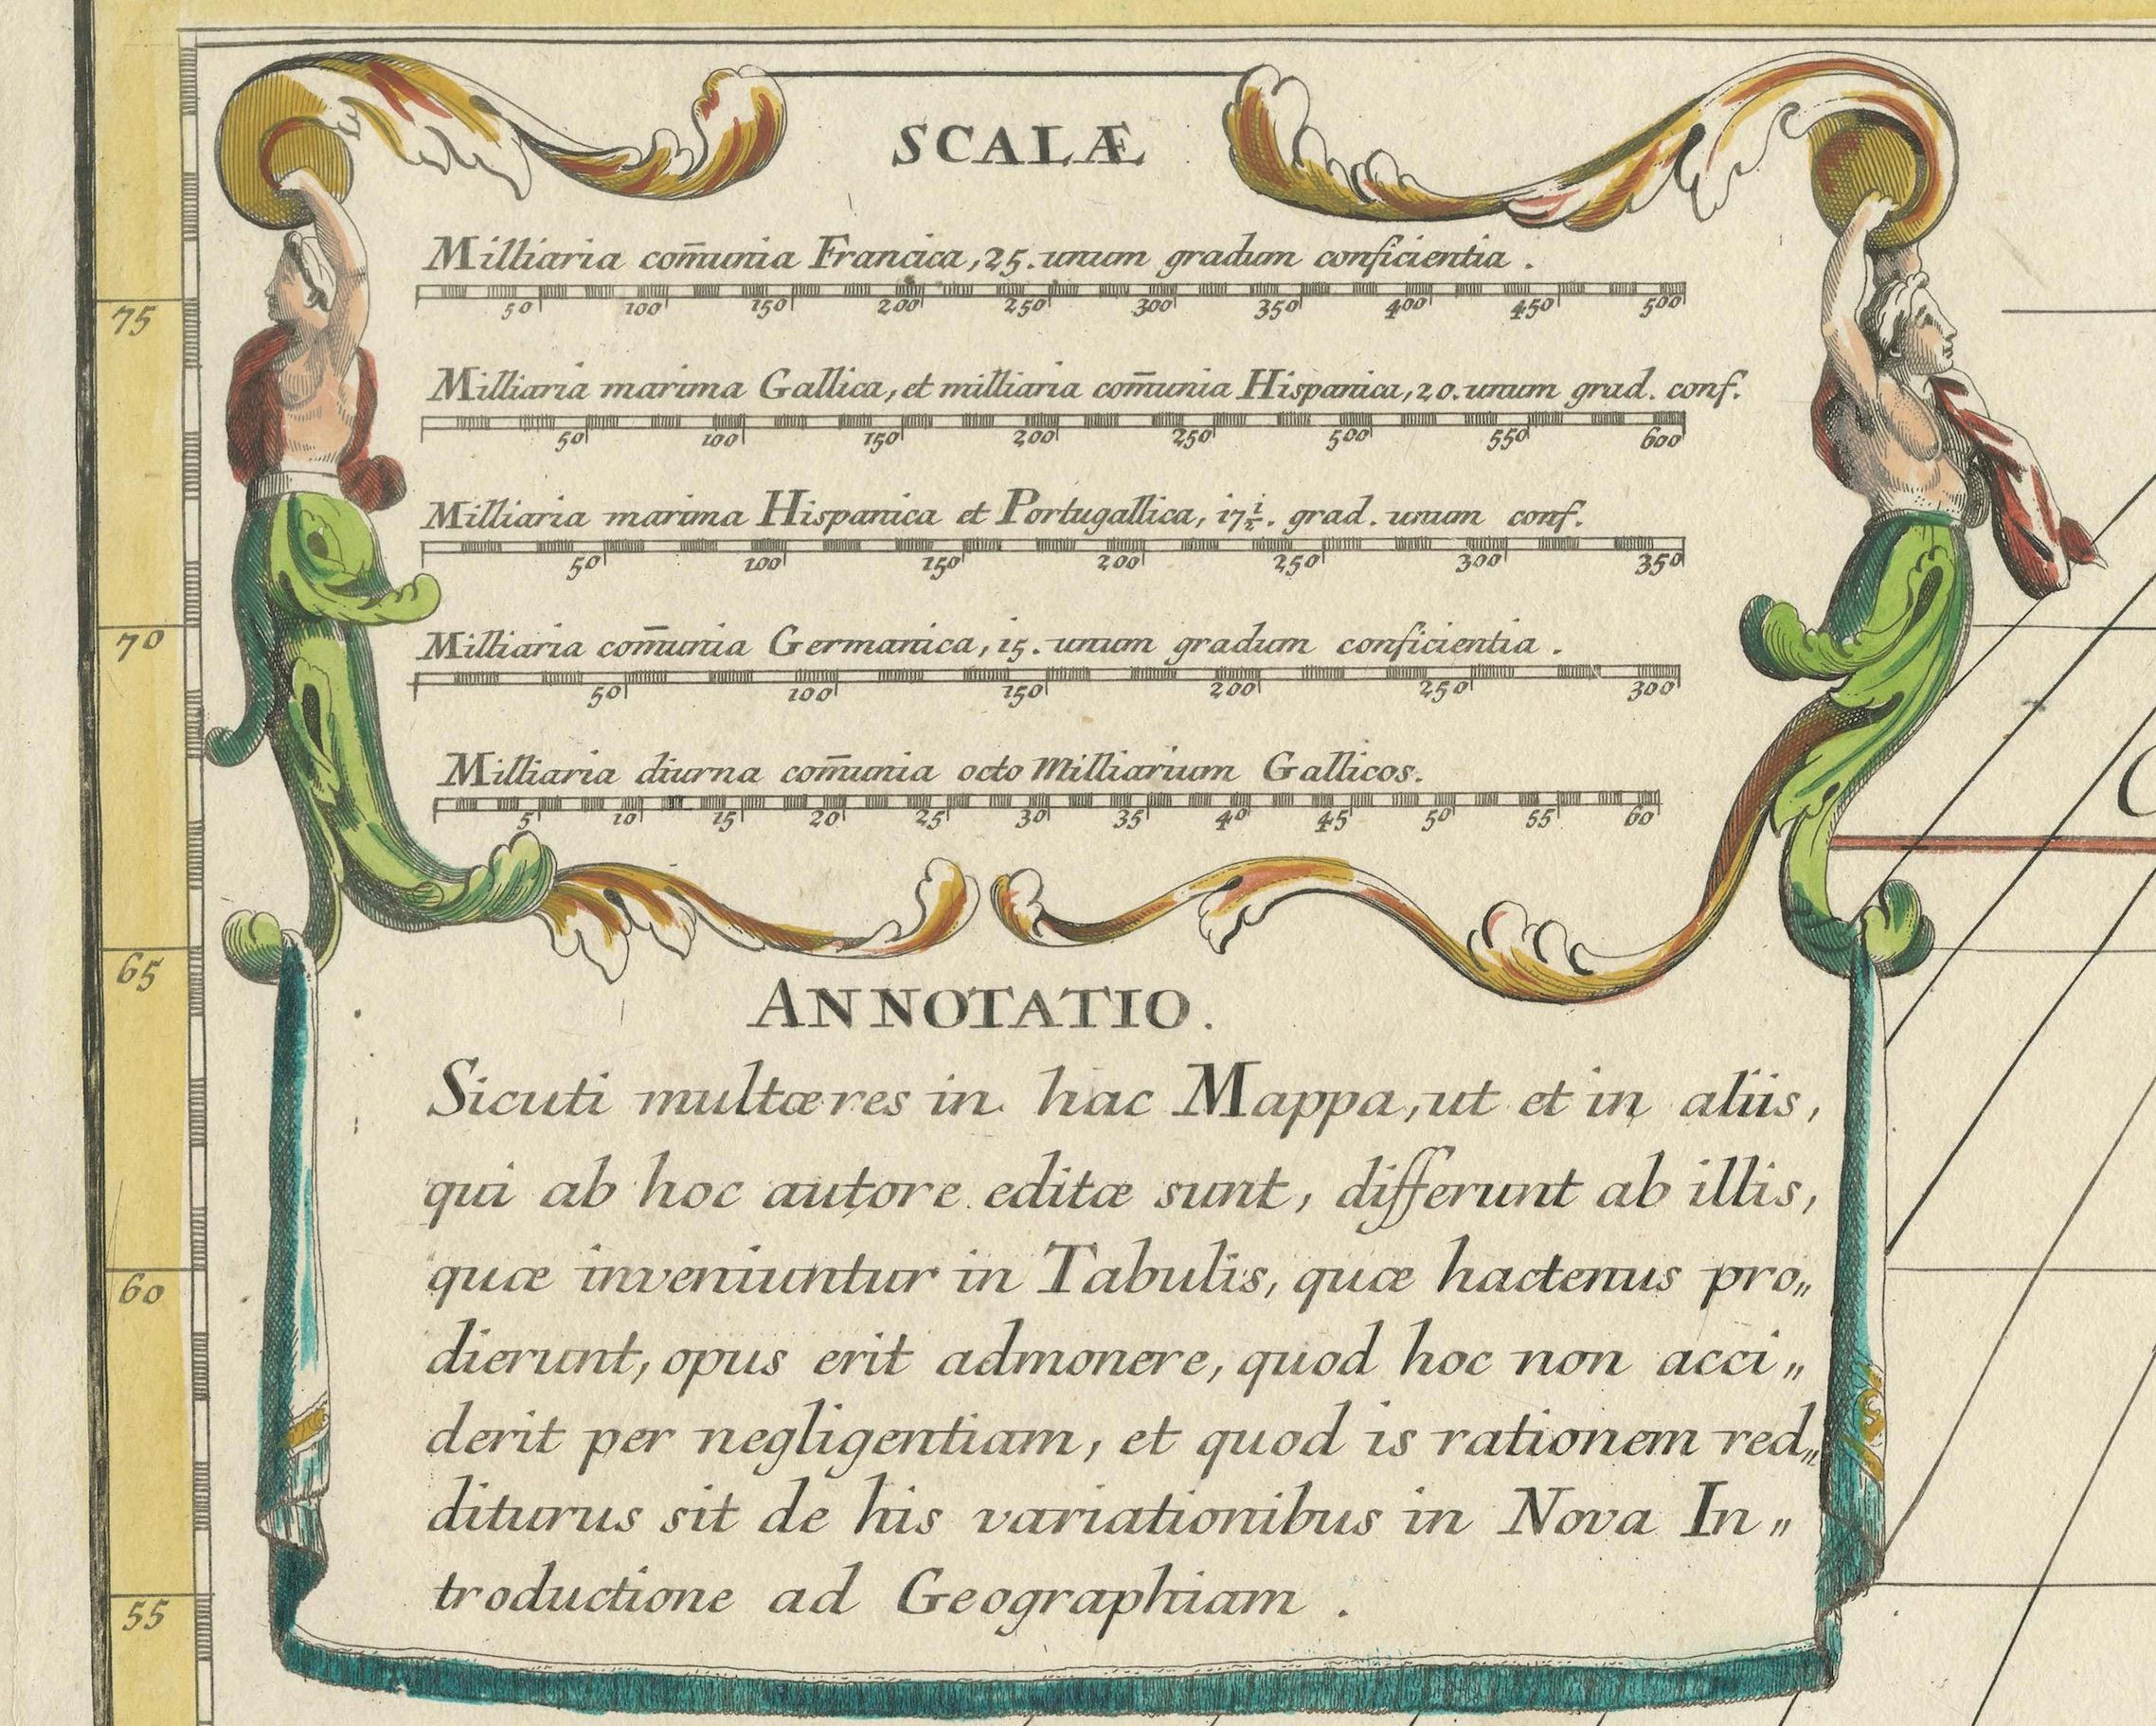 SCALÆ
Milliaria com̄unia Francica, 25. unum gradum conficientia.
50 100 150 200 250 300 350 400 450 500
Milliaria marima Gallica, et milliaria com̄unia Hispanica, 20. unum grad. conf.
50 100 150 200 250 500 550 600
Milliaria marima Hispanica et Portugallica, 17½. grad. unum conf.
50 100 150 200 250 300 350
Milliaria com̄unia Germanica, 15. unum gradum conficientia.
50 100 150 200 250 300
Milliaria diurna com̄unia octo Milliarium Gallicos.
5 10 15 20 25 30 35 40 45 50 55 60
ANNOTATIO.
Sicuti multæ res in hac Mappa, ut et in aliis,
qui ab hoc autore editæ sunt, differunt ab illis,
quæ inveniuntur in Tabulis, quæ hactenus pro„
dierunt, opus erit admonere, quod hoc non acci„
derit per negligentiam, et quod is rationem red„
diturus sit de his variationibus in Nova In„
troductione ad Geographiam.
75
70
65
60
55